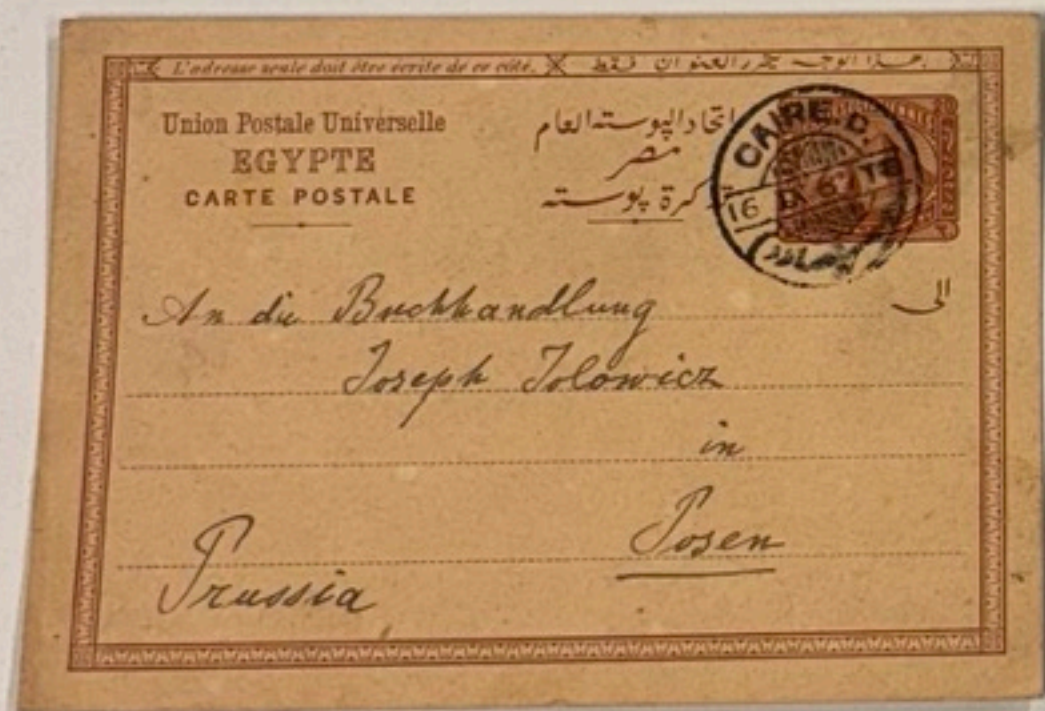 L'adresse seule doit être écrite de ce côté.
هذا الوجه يحرر العنوان فقط
Union Postale Universelle
EGYPTE
CARTE POSTALE
اتحاد البوسته العام
مصر
كرة بوسته
CAIRE. D.
16
الى
An die Buchhandlung
Joseph Jolowicz
in
Posen
Prussia